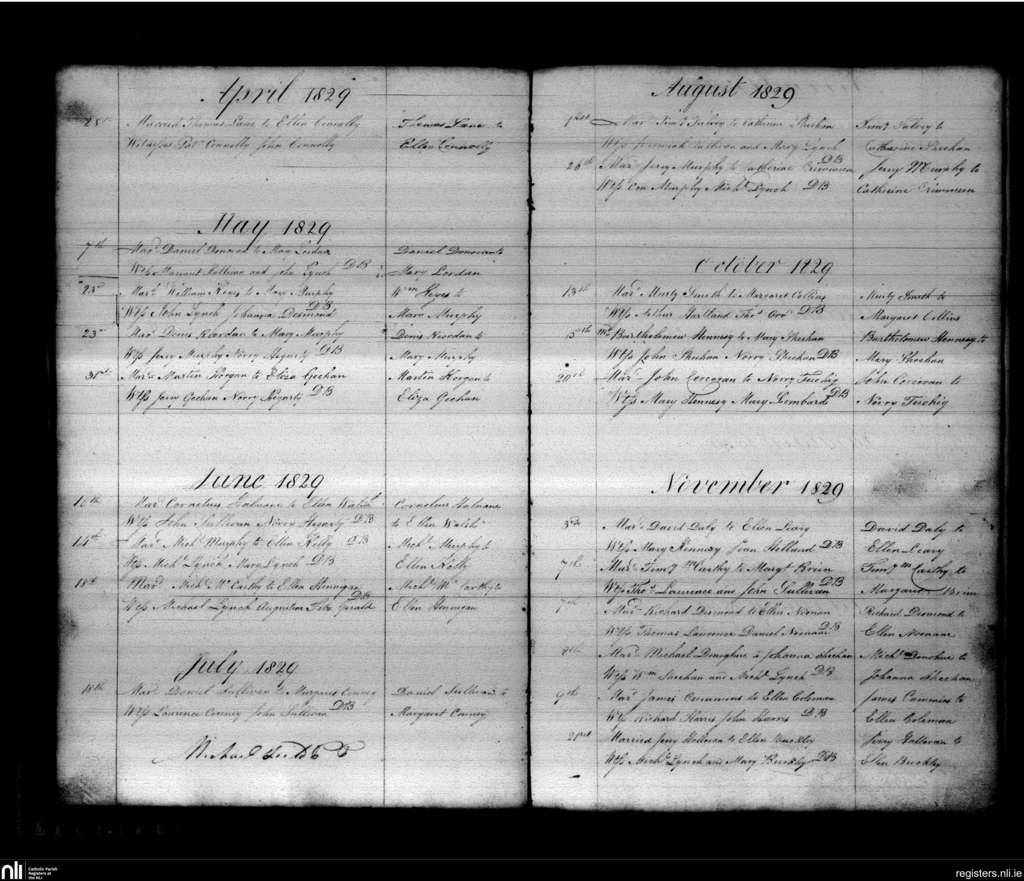 April 1829
28th Married Thomas Lane to Ellen Connolly Thomas Lane to
Witnesses Patk Connolly John Connolly Ellen Connolly
May 1829
7th Mard Daniel Donovan to Mary Lordan Daniel Donovan to
Wtss and John Lynch DB Mary Lordan
23d Mard William Keyes to Mary Murphy Wm Keyes to
Wtss John Lynch Johanna Desmond DB Mary Murphy
23d Mard Denis Riordan to Mary Murphy Denis Riordan to
Wtss Jerry Murphy Norry Hegarty DB Mary Murphy
31st Mard Martin Horgan to Eliza Geehan Martin Horgan to
Wtss Jerry Geehan Norry Hegarty DB Eliza Geehan
June 1829
10th Mard Cornelius to Ellen Walsh Cornelius
Wtss John Sullivan Norry Hegarty DB to Ellen Walsh
14th Mard Michl Murphy to Ellen Kelly DB Michl Murphy to
Wtss Michl Lynch Mary Lynch DB Ellen Kelly
18th Mard Michl McCarthy to Ellen Hennigan Michl McCarthy to
Wtss Michael Lynch Augustine Fitz Gerald DB Ellen
July 1829
18th Mard Daniel Sullivan to Margaret Conney Daniel Sullivan to
Wtss Laurence Conney John Sullivan DB Margaret Conney
Michael
August 1829
Mard Timy Falvey to Catherine Sheehan Timy Falvey to
Wtss Jeremiah Sullivan and Mary Lynch DB Catharine Sheehan
26th Mard Jerry Murphy to Catherine Crimmeen Jerry Murphy to
Wtss Con Murphy Michl Lynch DB Catherine Crimmeen
October 1829
13th Mard Murty Smith to Margaret Collins Murty Smith to
Wtss Arthur Hartland Thos Orr DB Margaret Collins
15th Md Bartholomew Hennesy to Mary Sheehan Bartholomew Hennesy to
Wtss John Sheehan Norry Sheehan DB Mary Sheehan
20th Mard John Corcoran to Norry Twohig John Corcoran to
Wtss Mary Hennesy Mary Lombard DB Norry Twohig
November 1829
3rd Mard David Daly to Ellen Leary David Daly to
Wtss Mary Hennesy Joan Holland DB Ellen Leary
7th Mard Timy McCarthy to Margt Brien Timy McCarthy to
Wtss Thos Laurence and John Sullivan DB Margaret Brien
7th Mard Richard Desmond to Ellen Noonan Richard Desmond to
Wtss Thomas Laurence Daniel Noonan DB Ellen Noonane
8th Mard Michael Donoghue to Johanna Sheehan Michl Donohue to
Wtss Wm Sheehan and Michl Lynch DB Johanna Sheehan
9th Mard James Cummins to Ellen Coleman James Cummins to
Wtss Richard Harris John Harris DB Ellen Coleman
21st Married Jerry Hallovan to Ellen Buckley Jerry Hallovan to
Wtss Michl Lynch and Mary Buckley DB Ellen Buckley
nli Catholic Parish
Registers at
the NLI
registers.nli.ie